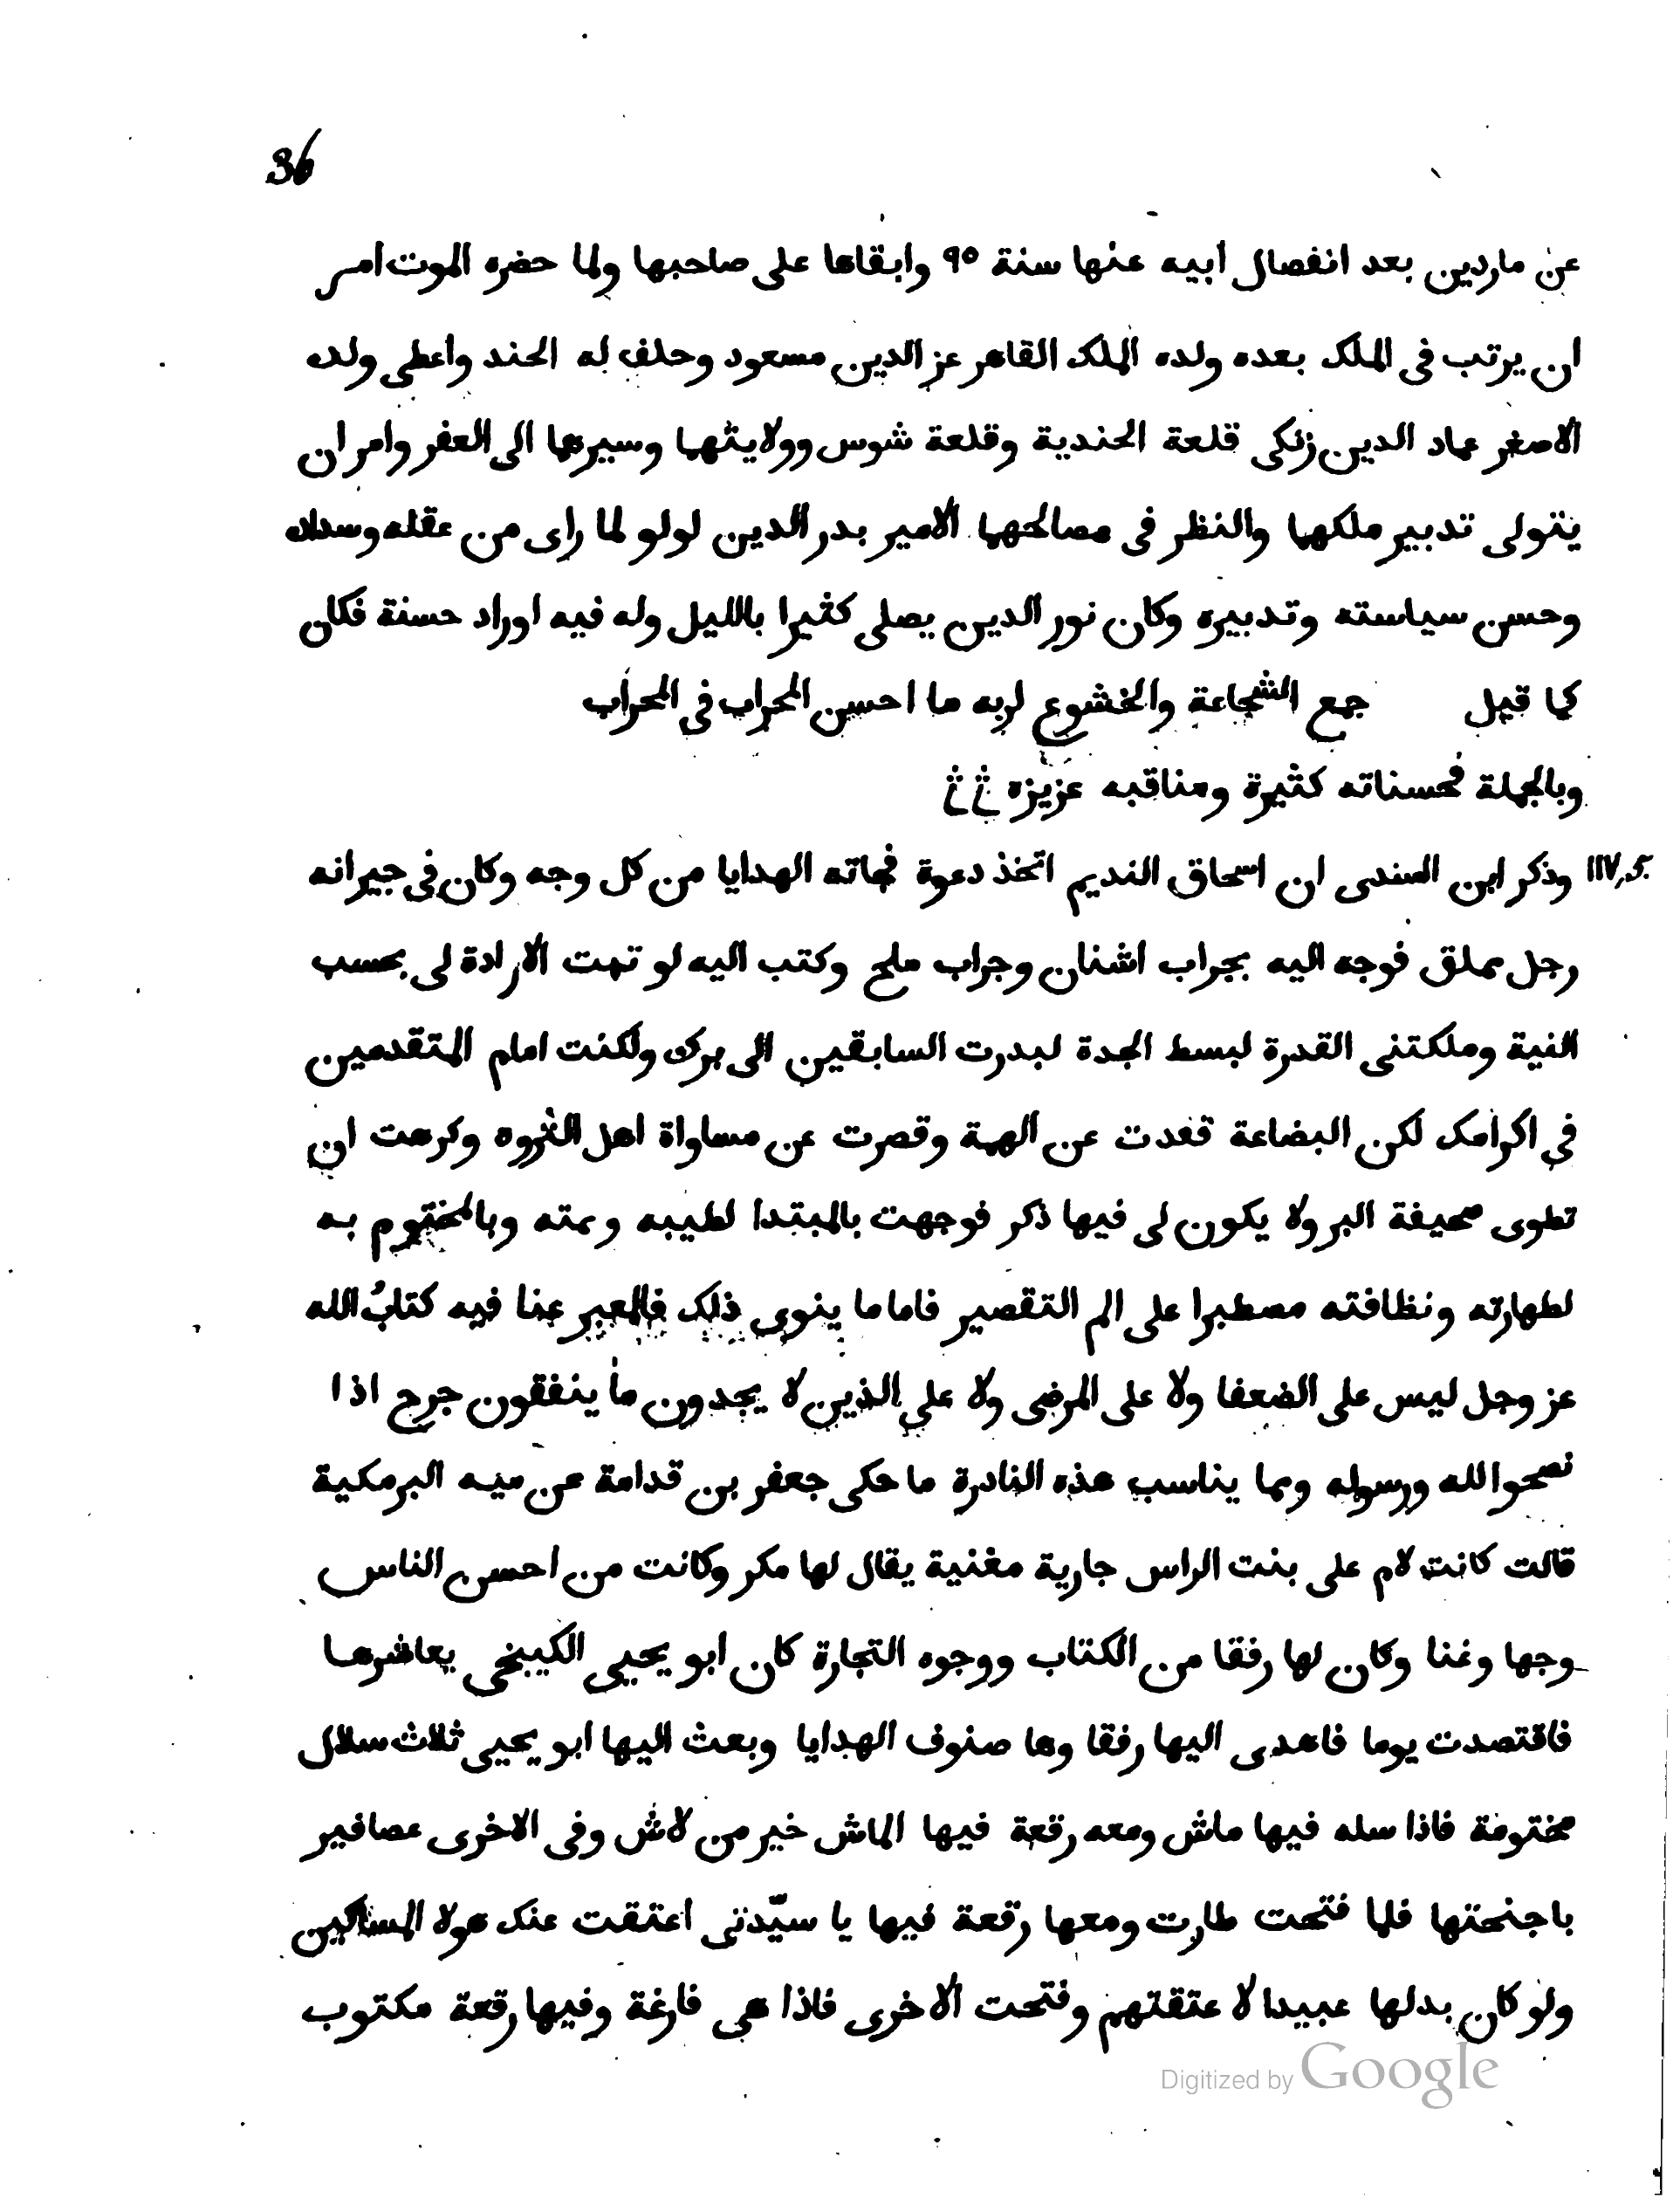 36
عن ماردين بعد انفصال ابيه عنها سنة ٩٥ وابقاها على صاحبها ولما حضره الموت امر
ان يرتب فى الملك بعده ولده الملك القاهر عز الدين مسعود وحلف له الحند واعطى ولده
الاصغر عماد الدين زنكى قلعة الحندية وقلعة شوس وولايتهما وسيرهما الى العفر وامر ان
يتولى تدبير ملكهما والنظر فى مصالحهما الامير بدر الدين لولو لما راى من عقله وسداده
وحسن سياسته وتدبيره وكان نور الدين يصلى كثيرا بالليل وله فيه اوراد حسنة فكان
كما قيل جمع الشجاعة والخشوع لربه ما احسن المحراب فى المحراب
وبالجملة فحسناته كثيرة ومناقبه عزيزه
117,5. وذكر ابن السندى ان اسحاق النديم اتخذ دعوة فجاته الهدايا من كل وجه وكان فى جيرانه
رجل مملق فوجه اليه بجراب اشنان وجراب ملح وكتب اليه لو تمت الارادة لى بحسب
النية وملكتنى القدرة لبسط الجدة لبدرت السابقين الى برك ولكنت امام المتقدمين
فى اكرامك لكن البضاعة قعدت عن الهمة وقصرت عن مساواة اهل الثروه وكرهت ان
تطوى صحيفة البر ولا يكون لى فيها ذكر فوجهت بالمبتدا لطيبه ويمته وبالمختوم به
لطهارته ونظافته مصطبرا على الم التقصير فاما ما ينوى ذلك فالمعبر عنا فيه كتابُ الله
عز وجل ليس على الضعفا ولا على المرضى ولا على الذين لا يجدون ما ينفقون جرح اذا
نصحوا لله ورسوله ومما يناسب هذه النادرة ما حكى جعفر بن قدامة عن ميه البرمكية
قالت كانت لام على بنت الراس جارية مغنية يقال لها مكر وكانت من احسن الناس
وجها وغنا وكان لها رفقا من الكتاب ووجوه التجارة كان ابو يحيى الكيبخى يعاشرها
فاقتصدت يوما فاهدى اليها رفقا وها صنوف الهدايا وبعث اليها ابو يحيى ثلاث سلال
مختومة فاذا سله فيها ماش ومعه رقعة فيها الماش خير من لاش وفى الاخرى عصافير
باجنحتها فلما فتحت طارت ومعها رقعة فيها يا سيّدتى اعتقت عنك هولا المساكين
ولو كان بدلها عبيدا لاعتقتهم وفتحت الاخرى فاذا هى فارغة وفيها رقعة مكتوب
Digitized by Google